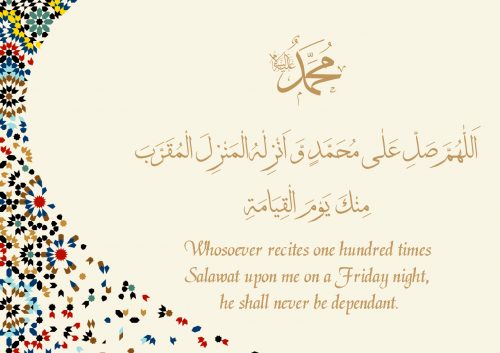 محمد ﷺ
اَللّٰهُمَّ صَلِّ عَلٰى مُحَمَّدٍ وَّ اَنْزِلْهُ الْمَنْزِلَ الْمُقَرَّبَ
مِنْكَ يَوْمَ الْقِيَامَةِ
Whosoever recites one hundred times
Salawat upon me on a Friday night,
he shall never be dependant.